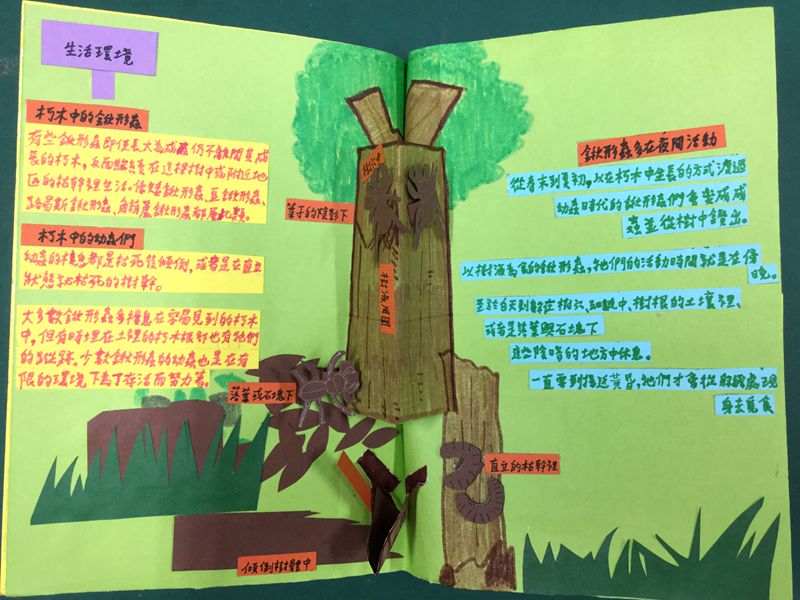 生活環境
朽木中的鍬形蟲
有些鍬形蟲即使長大為成蟲仍不離開其成
長的朽木,反而繼續在這棵樹中或附近地
區的枯幹裡生活。像矮鍬形蟲、豆鍬形蟲、
路易斯鍬形蟲、角葫蘆鍬形蟲都屬此類。
朽木中的幼蟲們
幼蟲的棲息都是枯死後傾倒,或者是在直立
狀態就枯死的樹幹。
大多數鍬形蟲多棲息在容易見到的朽木
中,但有時埋在土裡的朽木根部也有牠們
的蹤跡。少數鍬形蟲的幼蟲也是在有
限的環境下為了存活而努力著。
葉子的陰影下
樹液周圍
落葉或石塊下
直立的枯幹裡
傾倒樹體中
鍬形蟲多在夜間活動
從春末到夏初,以在朽木中生長的方式渡過
幼蟲時代的鍬形蟲們會變成成
蟲並從樹中鑽出。
以樹液為食的鍬形蟲,牠們的活動時間就是在傍
晚。
至於白天則躲在樹穴、細縫中、樹根的土壤裡、
或者是落葉與石塊下
這些陰暗的地方中休息。
一直要到接近黃昏,牠們才會從躲藏處現
身去覓食